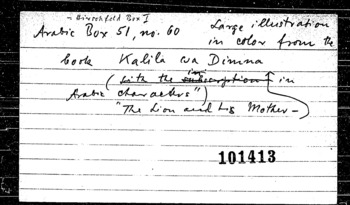 - Hirschfeld Box I
Arabic Box 51, no. 60 Large illustration
in color from the
book Kalila wa Dimna
(with the inscription in
Arabic characters")
"The Lion and his Mother -
101413